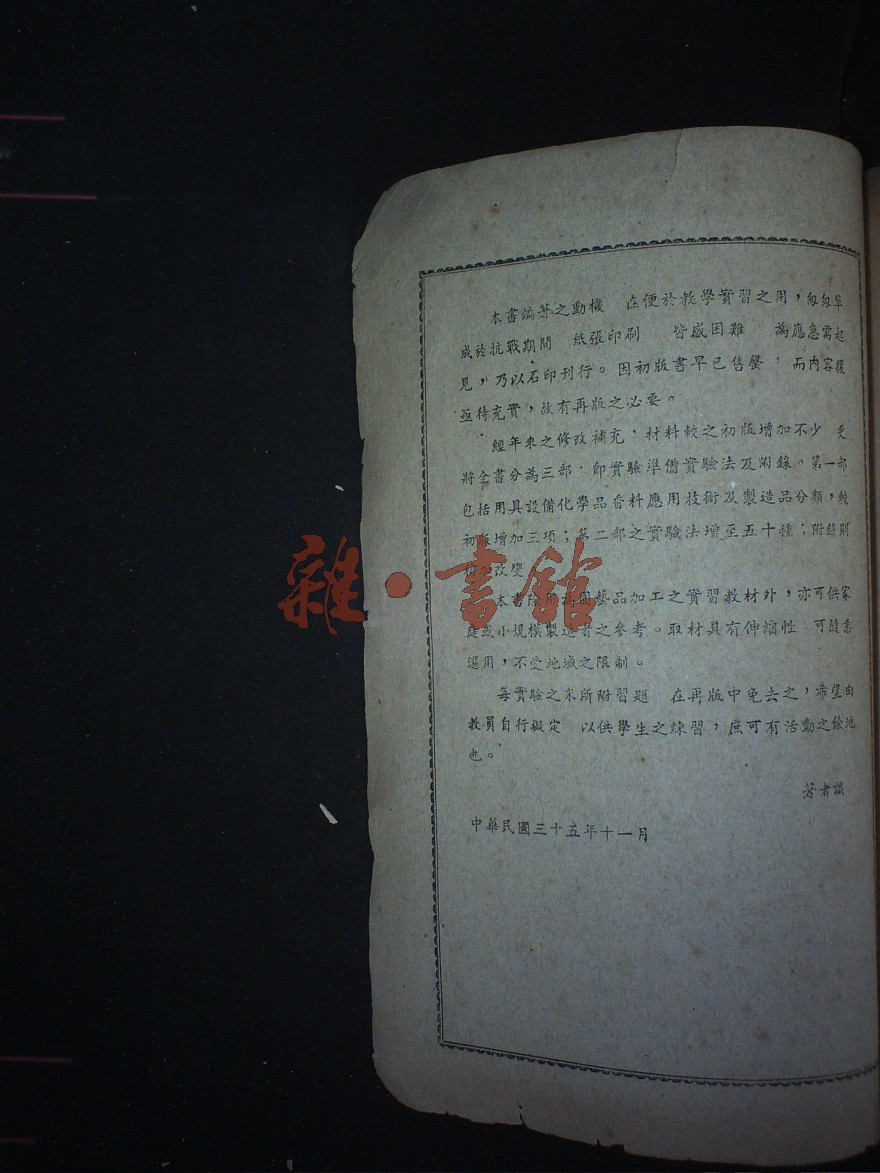 本書編著之動機　在便於教學實習之用，匆匆草
成於抗戰期間　紙張印刷　皆感困難　為應急需起
見，乃以石印刊行。因初版書早已售罄，而內容復
亟待充實，故有再版之必要。
經年來之修改補充，材料較之初版增加不少　更
將全書分為三部，即實驗準備實驗法及附錄。第一部
包括用具設備化學品香料應用技術及製造品分類，較
初版增加三項；第二部之實驗法增至五十種；附錄則
加改變
本書除 園藝品加工之實習教材外，亦可供家
庭或小規模製造者之參考。取材具有伸縮性　可隨意
選用，不受地域之限制。
每實驗之末所附習題　在再版中免去之，希望由
教員自行擬定　以供學生之練習，庶可有活動之餘地
也。
著者識
中華民國三十五年十一月
雜·書館